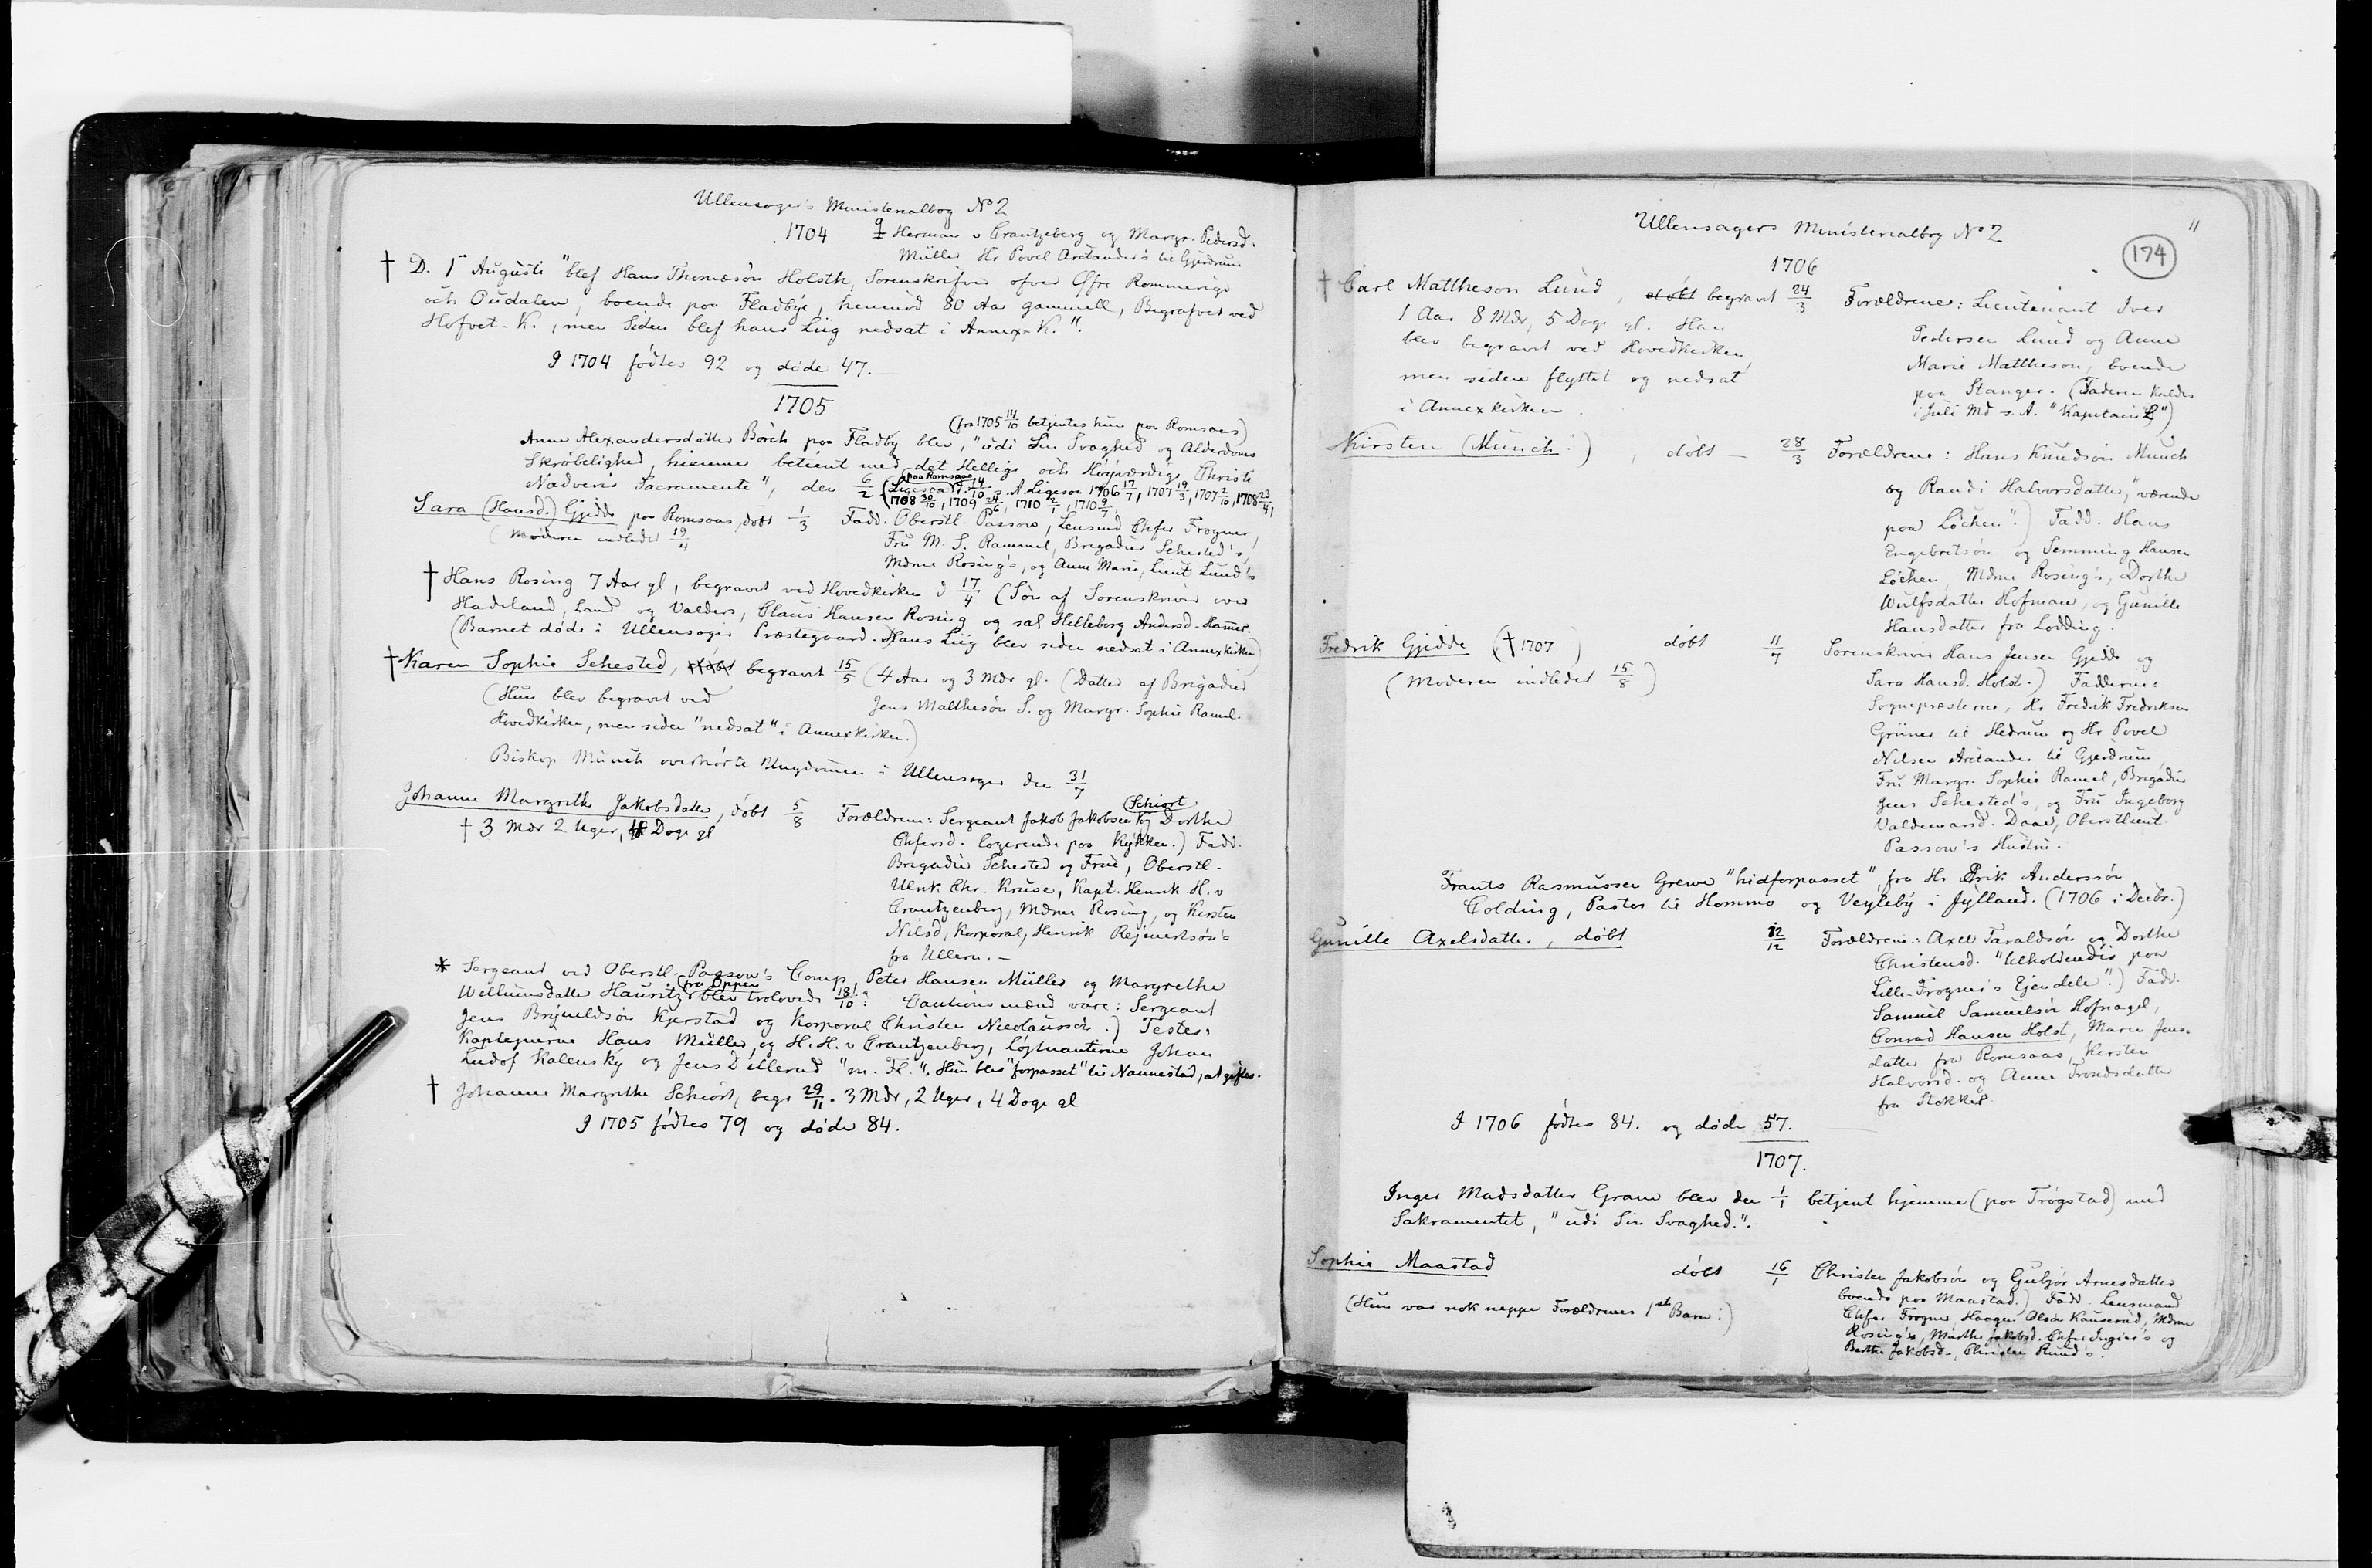 Ullensagers Ministerialbog No 2
1704 Herman v Crantzeberg og Margr. Pedersd.
Müller Hr Povel Aretander's til Gjerdrum
† D. 1ste Augusti "blef Hans Thomæsøn Holsth, Sorenskrifver ofver Øfre Rommerige
och Oudalen, boende paa Fladbye, henimod 80 Aar gammell, Begrafvet ved
Hofvet-K., men siden blef hans Liig nedsat i Annex-K.".
I 1704 fødtes 92 og døde 47.
1705
(fra 1705 14/10 betjentes hun paa Romsaas)
Anne Alexandersdatter Borch paa Fladby blev, "udi Sin Svaghed og Alderdoms
Skrøbelighed, hiemme betient med det Hellige och Høyværdige Christi
Nadveris Sacramente", den 6/2 (Ligesaa paa Romsaas d. 14/10 s. A. Ligesaa 1706 17/7, 1707 19/3, 1707 2/10, 1708 23/4,
1708 30/10, 1709 24/6, 1710 2/1, 1710 9/7,
Sara (Hansd.) Gjedde paa Romsaas, døbt 1/3 Fadd. Oberstl. Passow, Lensmd Chfer Frogner,
(Moderen indledet 19/4 Fru M. S. Rammel, Brigader Sehested's,
Mdme Rosing's, og Anne Marie, Lieut Lund's
† Hans Rosing 7 Aar gl, begravet ved Hovedkirken d 17/4 (Søn af Sorenskriver over
Hadeland, Land og Valders, Claus Hansen Rosing og sal Helleborg Andersd. Hamer.
(Barnet døde i Ullensager Præstegaard. Hans Liig blev siden nedsat i Annexkirken)
† Karen Sophie Sehested, døbt begravet 15/5 (4 Aar og 3 Mdr gl. (Datter af Brigader
(Hun blev begravet ved Jens Matthesøn S. og Margr. Sophie Ramel.
Hovedkirken, men siden "nedsat" i Annexkirken.)
Biskop Munch overhørte Ungdommen i Ullensager den 31/7
Johanne Margrethe Jakobsdatter, døbt 5/8 Forældrene: Sergeant Jakob Jakobsen Schiort og Dorthe
† 3 Mdr 2 Uger, 4 Dage gl Chfersd. logerende paa Kykken.) Fadd.
Brigader Sehested og Frue, Oberstl.
Ulrik Chr. Kruse, Kapt. Henrik H. v
Crantzenberg, Mdme Rosing, og Kirsten
Nilsd, Korporal, Henrik Rejnertsøn's
fra Ullern. –
* Sergeant ved Oberstl. Passow's Comp. Peter Hansen Müller og Margrethe
Willumsdatter Hauritz fra Oppen blev trolovede 18/10: Cautionsmænd vare: Sergeant
Jens Brynildsøn Kjerstad og Korporal Christen Nicolaussøn.) Testes:
Kaptejnerne Hans Müller og H. H. v Crantzenberg, Løjtnanterne Johan
Ludof Kalensky og Jens Dillerud "m. Fl.". Hun blev "forpasset" til Nannestad, at giftes.
† Johanne Margrethe Schiort, begr 29/11. 3 Mdr, 2 Uger, 4 Dage gl
I 1705 fødtes 79 og døde 84.
Ullensagers Ministerialbog No 2
11
174
1706
† Carl Mattheson Lund, døbt begravet 24/3 Forældrene: Lieutenant Iver
1 Aar 8 Mdr, 5 Dage gl. Han Pedersen Lund og Anne
blev begravet ved Hovedkirken, Marie Mattheson, boende
men siden flyttet og nedsat paa Stanger. (Faderen kaldes
i Annexkirken. i Juli Md s. A. "Kapitain L")
Kirsten (Munch:), døbt – 28/3 Forældrene: Hans Knudsøn Munch
og Randi Halvorsdatter, "værende
paa Løchen".) Fadd. Hans
Engebretsøn og Semming Hansen
Løchen, Mdme Rosing's, Dorthe
Wulfsdatter Hofman, og Gunille
Hansdatter fra Lodding.
Fredrik Gjedde († 1707) døbt 11/7 Sorenskriver Hans Jensen Gjedde og
(Moderen indledet 15/8) Sara Hansd. Holst.) Fadderne:
Sognepræsterne, Hr Fredrik Fredriksen
Grüner til Hedrum og Hr Povel
Nilsen Aretander til Gjerdrum,
Fru Margr. Sophie Ramel, Brigader
Jens Sehested's, og Fru Ingeborg
Valdemarsd. Daae, Oberstlieut.
Passow's Hustru.
Frants Rasmussen Grewe "hidforpasset" fra Hr Erik Anderssøn
Colding, Pastor til Hommo og Veyleby i Jylland. (1706 i Decbr.)
Gunille Axelsdatter, døbt 12/12 Forældrene: Axel Taraldsøn og Dorthe
Christensd. "tilholdendis paa
Lille-Frogner's Ejendele".) Fadd.
Samuel Samuelsøn Hofnagel,
Conrad Hansen Holst, Maren Jens-
datter fra Romsaas, Kersten
Halvorsd. og Anne Trondsdatter
fra Stokker.
I 1706 fødtes 84. og døde 57.
1707.
Inger Madsdatter Gram blev den 1/1 betjent hjemme (paa Trøgstad) med
Sakramentet, "udi Sin Svaghed.".
Sophie Maastad døbt 16/1 Christen Jakobsøn og Gubjør Arnesdatter
boende paa Maastad.) Fadd. Lensmand
(Hun var nok neppe Forældrenes 1ste Barn:) Chfer Frogner Haagen Olsøn Kauserud, Mdme
Rosing's, Marthe Jakobsd. Chfer Ingier's og
Berthe Jakobsd., Christen Rund's.